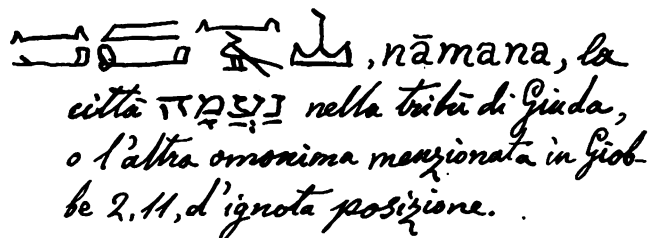 , nāmana, la
città נַעֲמָה nella tribù di Giuda,
o l'altra omonima menzionata in Giob-
be 2, 11, d'ignota posizione.